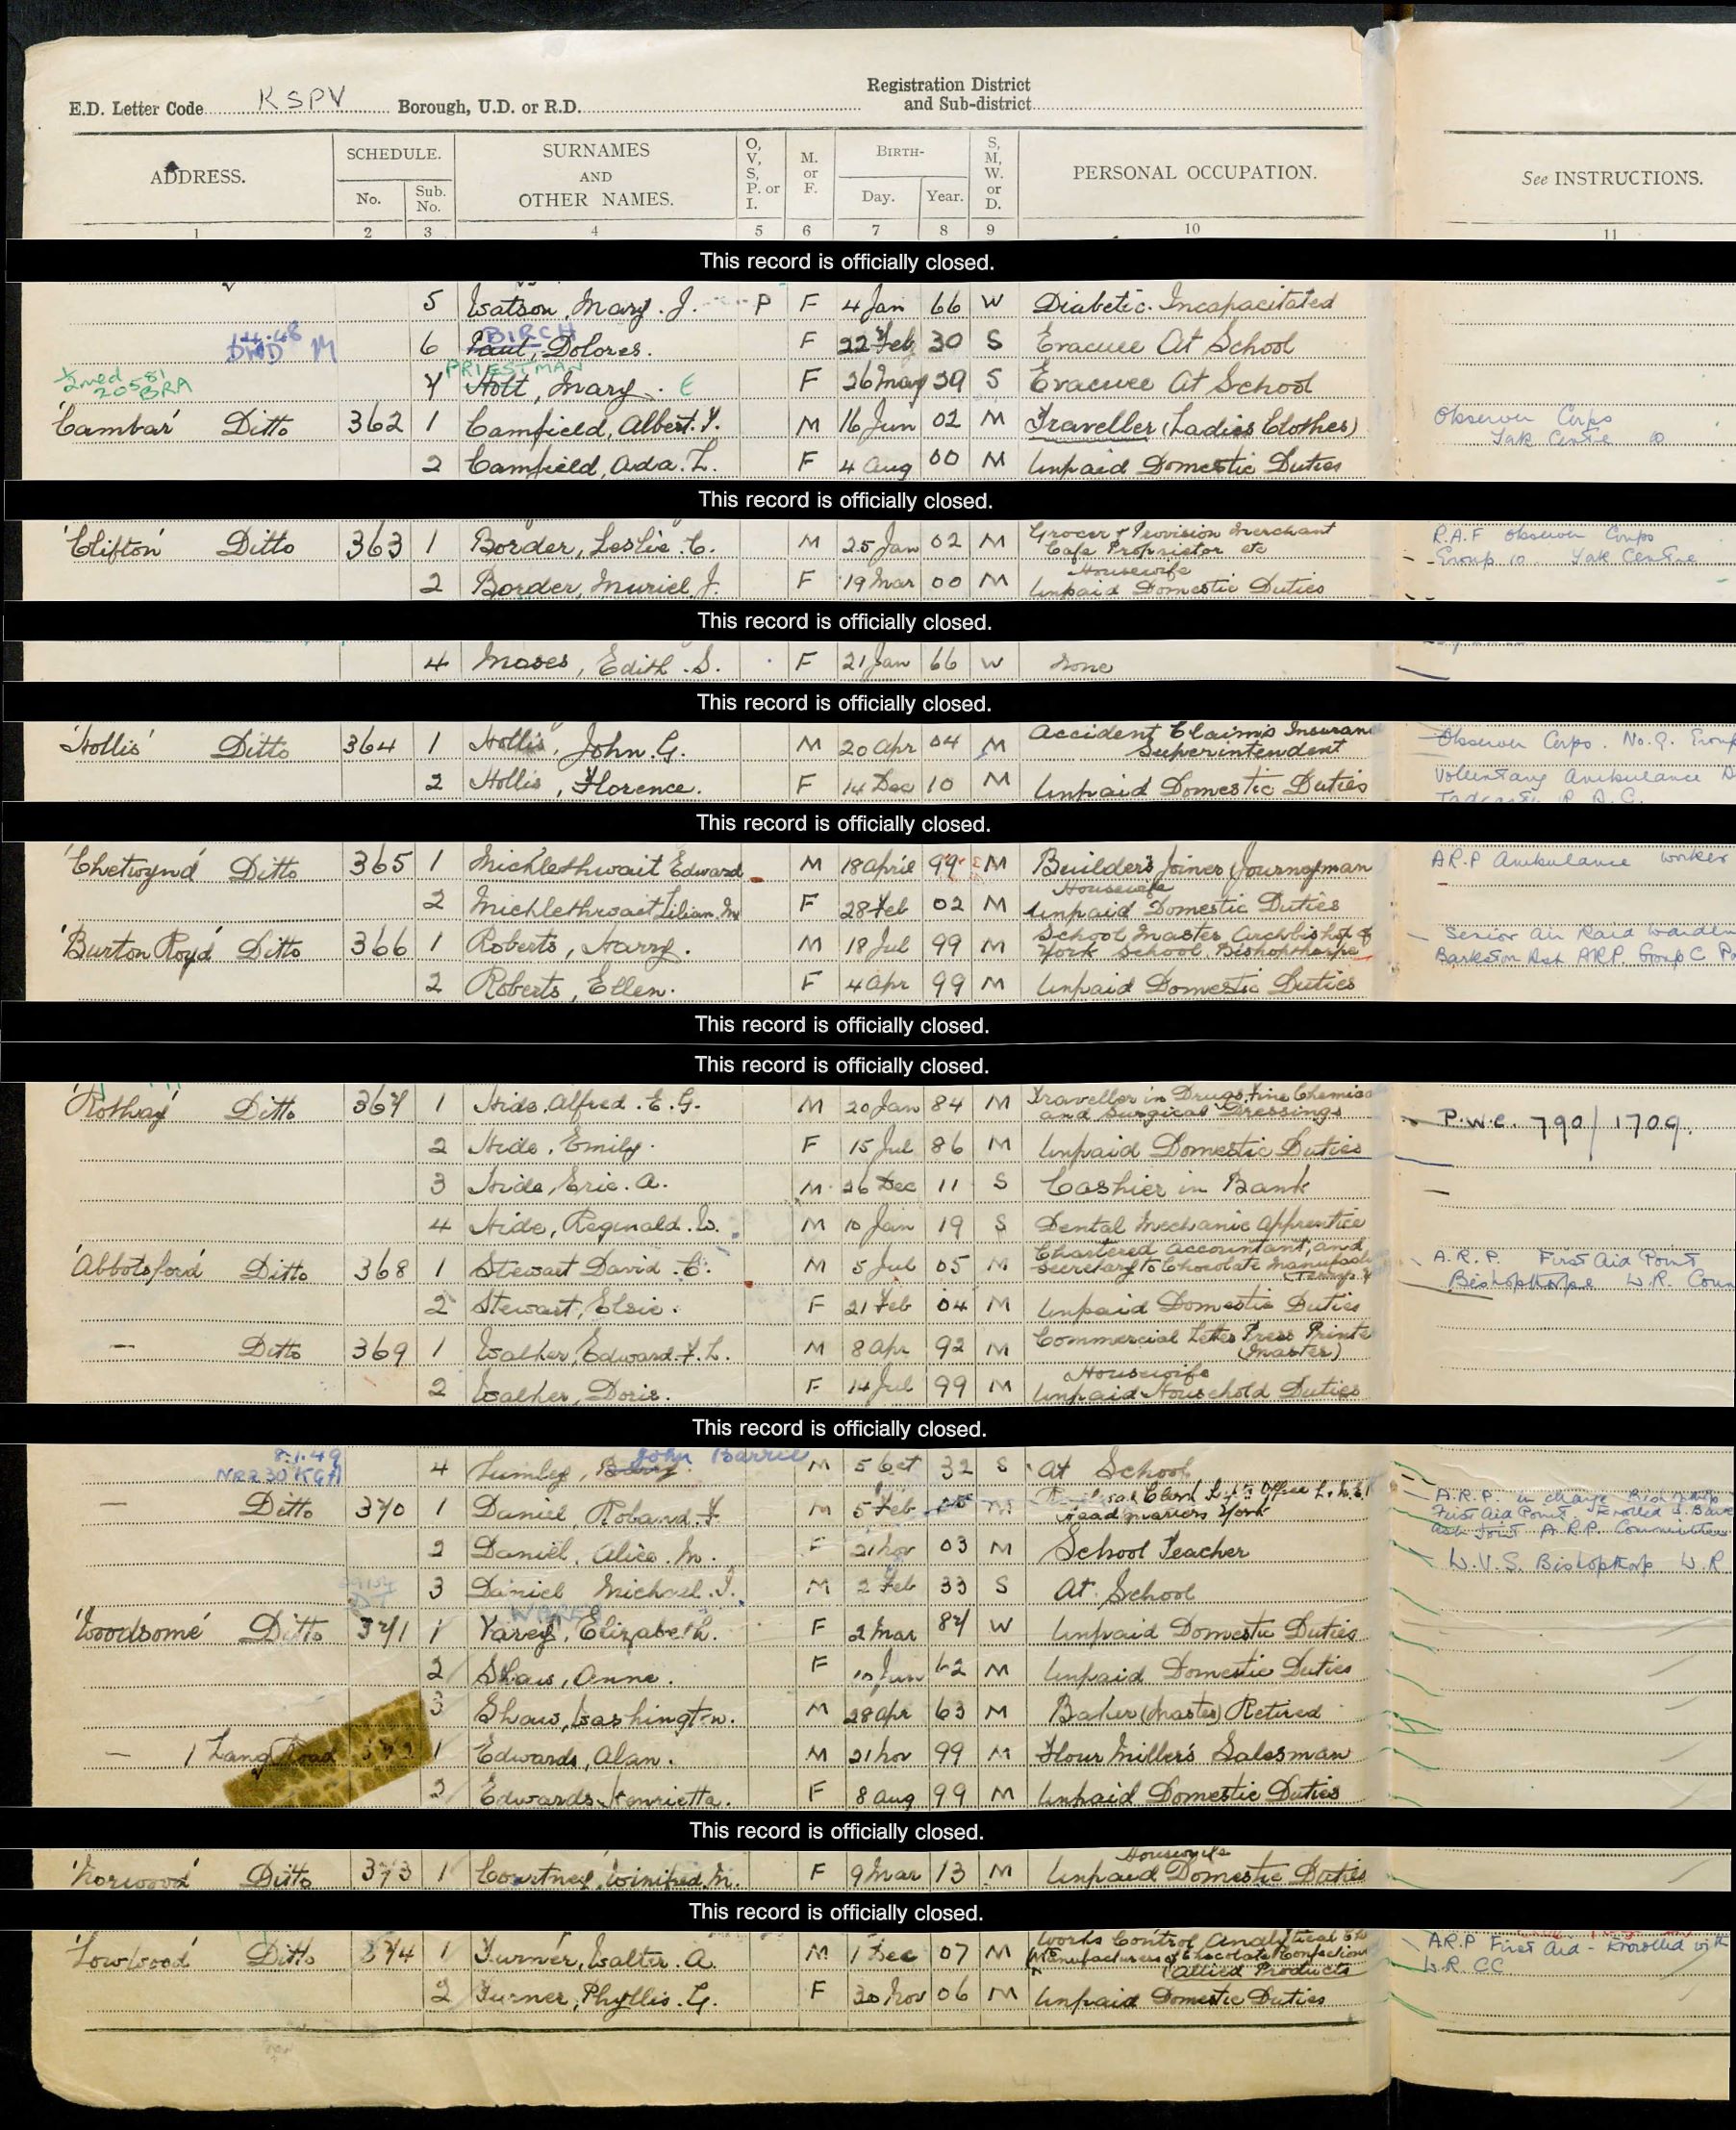 Registration District
E.D. Letter Code KSPV Borough, U.D. or R.D. and Sub-district
ADDRESS. SCHEDULE. No. Sub. No. SURNAMES AND OTHER NAMES. O, V, S, P. or I. M. or F. BIRTH- Day. Year. S, M, W. or D. PERSONAL OCCUPATION. See INSTRUCTIONS.
1 2 3 4 5 6 7 8 9 10 11
This record is officially closed.
5 Watson, Mary. J. P F 4 Jan 66 W Diabetic. Incapacitated
BIRCH
M 6 Paul, Dolores. F 22 Feb 30 S Evacuee At School
PRIESTMAN
20581 BRA 7 Holt, Mary. E F 26 May 29 S Evacuee At School
'Cambar' Ditto 362 1 Camfield, Albert. F. M 16 Jun 02 M Traveller (Ladies Clothes) Observer Corps
2 Camfield, Ada. L. F 4 Aug 00 M Unpaid Domestic Duties
This record is officially closed.
'Clifton' Ditto 363 1 Border, Leslie. C. M 25 Jan 02 M Grocer & Provision Merchant R.A.F Observer Corps
Cafe Proprietor etc Group 10 York Centre
Housewife
2 Border, Muriel J. F 19 Mar 00 M Unpaid Domestic Duties
This record is officially closed.
4 Moses, Edith. S. F 21 Jan 66 W None
This record is officially closed.
'Hollis' Ditto 364 1 Hollis, John. G. M 20 Apr 04 M Accident Claims Insuran Observer Corps. No. 9. Group
Superintendent
2 Hollis, Florence. F 14 Dec 10 M Unpaid Domestic Duties Voluntary Ambulance D
This record is officially closed.
'Chetwynd' Ditto 365 1 Micklethwait Edward M 18 April 99 M Builder's Joiner Journeyman A.R.P Ambulance Worker
Housewife
2 Micklethwait Lilian. M F 28 Feb 02 M Unpaid Domestic Duties
'Burton Royd' Ditto 366 1 Roberts, Harry. M 18 Jul 99 M School Master Archbishop of Senior Air Raid Warden
York School, Bishopthorpe Barkston Ash ARP. Group C Po
2 Roberts, Ellen. F 4 Apr 99 M Unpaid Domestic Duties
This record is officially closed.
This record is officially closed.
'Rothay' Ditto 367 1 Hide, Alfred. E. G. M 20 Jan 84 M Traveller in Drugs, Fine Chemica P.W.C. 790/1709.
and Surgical Dressings
2 Hide, Emily. F 15 Jul 86 M Unpaid Domestic Duties
3 Hide, Eric. A. M 26 Dec 11 S Cashier in Bank
4 Hide, Reginald. W. M 10 Jan 19 S Dental Mechanic Apprentice
'Abbotsford' Ditto 368 1 Stewart David. C. M 5 Jul 05 M Chartered Accountant, and A.R.P. First Aid Point
Secretary to Chocolate Manufact Bishopthorpe W.R. Coun
2 Stewart, Elsie. F 21 Feb 04 M Unpaid Domestic Duties
— Ditto 369 1 Walker, Edward. F. L. M 8 Apr 92 M Commercial Letter Press Printe
(Master)
Housewife
2 Walker, Doris. F 14 Jul 99 M Unpaid Household Duties
This record is officially closed.
8.1.49 John Barrie
4 Lumley, Barry. M 5 Oct 32 S At School
— Ditto 370 1 Daniel, Roland. F. M 5 Feb 05 M Clerk Office A.R.P. in charge Bishopthorpe
Headquarters York First Aid Point. Enrolled
Ash Joint A.R.P. Committee
2 Daniel, Alice. M. F 2 Nov 03 M School Teacher W.V.S. Bishopthorp W.R
3 Daniel Michael. J. M 2 Feb 33 S At School
'Woodsome' Ditto 371 1 Varey, Elizabeth. F 2 Mar 87 W Unpaid Domestic Duties
2 Shaw, Anne. F 10 Jun 62 M Unpaid Domestic Duties
3 Shaw, Washington. M 28 Apr 63 M Baker (Master) Retired
— 1 Lang Road 372 1 Edwards, Alan. M 21 Nov 99 M Flour Miller's Salesman
2 Edwards Henrietta. F 8 Aug 99 M Unpaid Domestic Duties
This record is officially closed.
Housewife
'Norwood' Ditto 373 1 Courtney, Winifred. M. F 9 Mar 13 M Unpaid Domestic Duties
This record is officially closed.
'Lowwood' Ditto 374 1 Turner, Walter. A. M 1 Dec 07 M Works Control Analytical Che A.R.P First Aid - Enrolled with
Manufacturers of Chocolate Confection W.R. CC
Allied Products
2 Turner, Phyllis. G. F 30 Nov 06 M Unpaid Domestic Duties